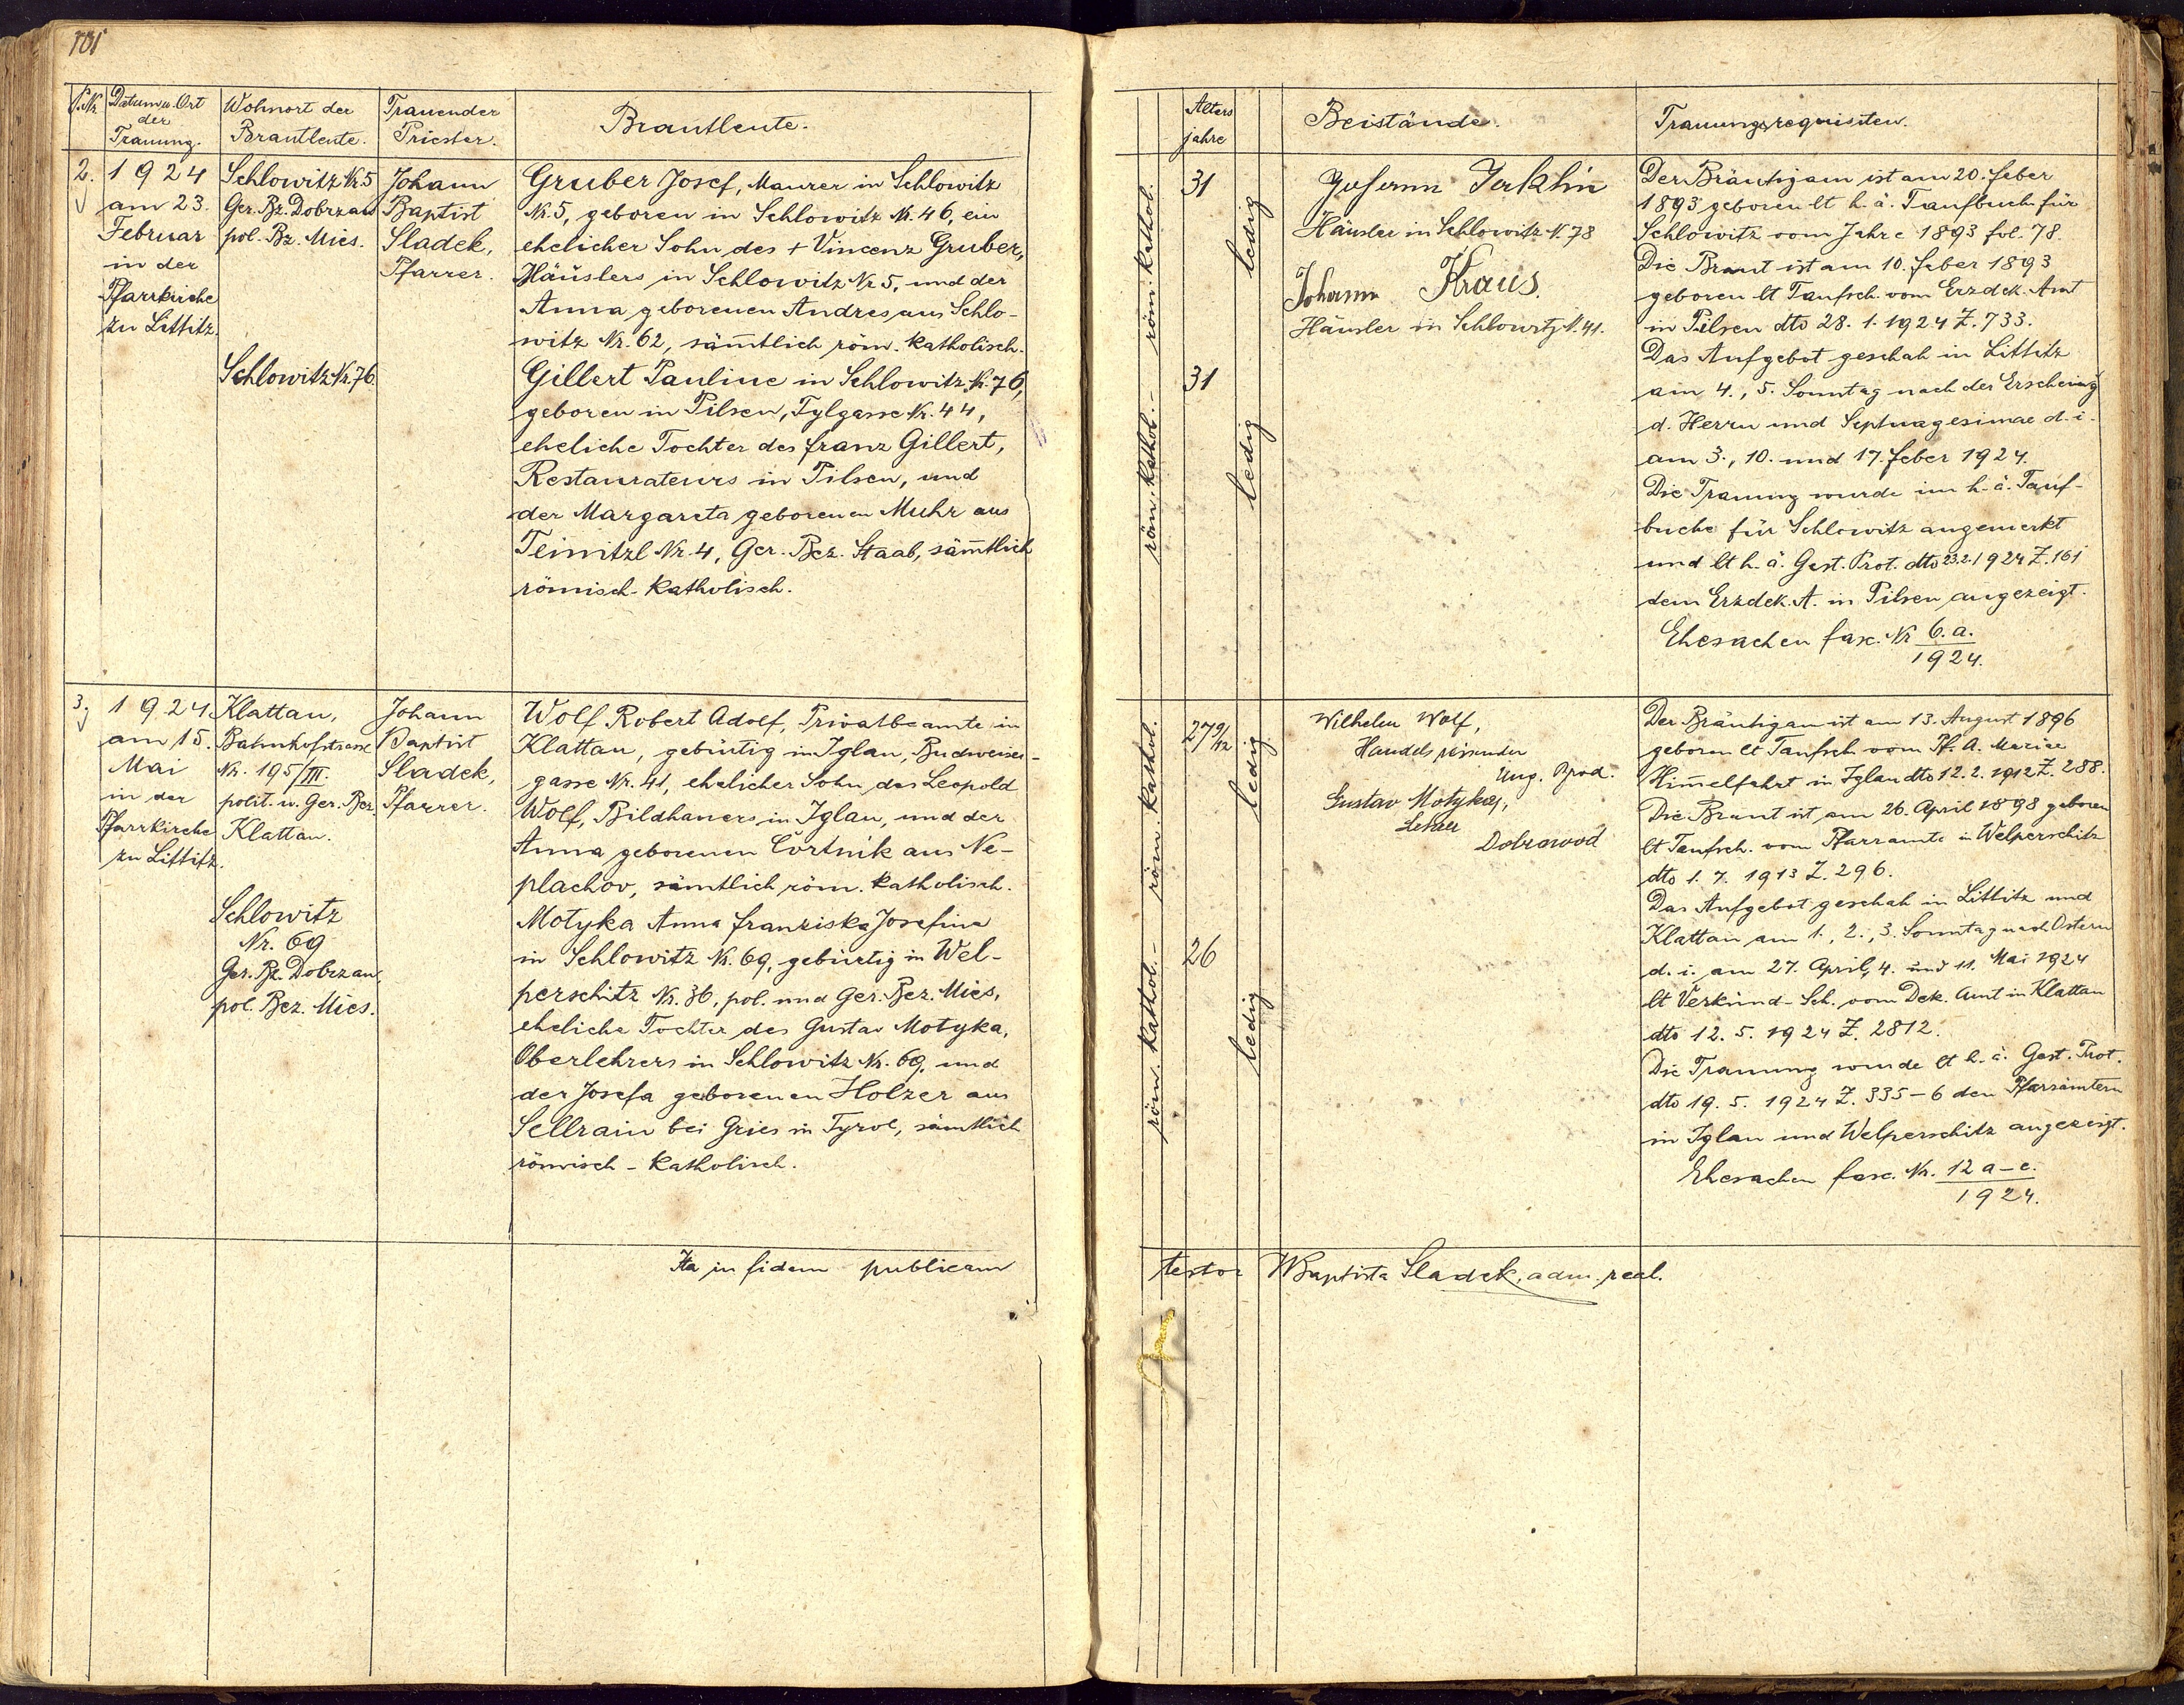 101
P.Nr.
Datum u. Ort
der
Trauung.
Wohnort der
Brautleute.
Trauender
Priester.
Brautleute.
2.
1924
am 23.
Februar
in der
Pfarrkirche
zu Littitz.
Schlowitz Nr. 5
Ger. Bz. Dobrzan
pol. Bz. Mies.
Schlowitz Nr. 76.
Johann
Baptist
Sladek,
Pfarrer.
Gruber Josef, Maurer in Schlowitz
Nr. 5, geboren in Schlowitz Nr. 46, ein
ehelicher Sohn des + Vincenz Gruber,
Häuslers in Schlowitz Nr 5, und der
Anna geborenen Andres aus Schlo-
witz Nr. 62, sämtlich röm. katholisch.
Gillert Pauline in Schlowitz Nr. 76,
geboren in Pilsen, Tylgasse Nr. 44,
eheliche Tochter des Franz Gillert,
Restaurateurs in Pilsen, und
der Margareta geborenen Muhr aus
Teinitzl Nr. 4, Ger. Bez. Staab, sämtlich
römisch-katholisch.
3.
1924
am 15.
Mai
in der
Pfarrkirche
zu Littitz.
Klattau,
Bahnhofstrasse
Nr. 195/III.
polit. u. Ger. Bez.
Klattau.
Schlowitz
Nr. 69
Ger. Bz. Dobrzan,
pol. Bez. Mies.
Johann
Baptist
Sladek,
Pfarrer.
Wolf Robert Adolf, Privatbeamte in
Klattau, gebürtig in Iglau, Budweiser-
gasse Nr. 41, ehelicher Sohn des Leopold
Wolf, Bildhauers in Iglau, und der
Anna geborenen Čortnik aus Ne-
plachov, sämtlich röm. katholisch.
Motyka Anna Franziska Josefina
in Schlowitz Nr. 69, gebürtig in Wel-
perschitz Nr. 36, pol. und Ger. Bez. Mies,
eheliche Tochter des Gustav Motyka,
Oberlehrers in Schlowitz Nr. 69, und
der Josefa geborenen Holzer aus
Sellrain bei Gries in Tyrol, sämtlich
römisch-katholisch.
Ita in fidem publicam
Alters
jahre
Beistände.
Trauungsrequisiten.
röm. kathol.
röm. kathol.-
31
31
ledig
ledig
Johann
Häusler in Schlowitz N. 78
Johann Kraus.
Häusler in Schlowitz N. 41.
Der Bräutigam ist am 20. Feber
1893 geboren lt h. ä. Taufbuch für
Schlowitz vom Jahre 1893 fol. 78.
Die Braut ist am 10. Feber 1893
geboren lt Taufsch. vom Erzdek. Amt
in Pilsen dto 28. 1. 1924 Z. 733.
Das Aufgebot geschah in Littitz
am 4., 5. Sonntag nach der Erscheing
d. Herrn und Septuagesimae d. i.
am 3., 10. und 17. Feber 1924.
Die Trauung wurde im h. ä. Tauf-
buche für Schlowitz angemerkt
und lt h. ä. Gest. Prot. dto 23.2.1924 Z. 161
dem Erzdek. A. in Pilsen angezeigt.
Ehesachen fasc. Nr 6. a.
1924.
röm. kathol.
röm. kathol.-
27 9/12
26
ledig
ledig
Wilhelm Wolf,
Handelsreisender
Ung. Brod.
Gustav Motyka,
Lehrer
Dobrowod
Der Bräutigam ist am 13. August 1896
geboren lt Taufsch. vom Pf. A. Mariae
Himmelfahrt in Iglau dto 12. 2. 1912 Z. 288.
Die Braut ist am 26. April 1898 geboren
lt Taufsch. vom Pfarramte in Welperschitz
dto 1. 7. 1913 Z. 296.
Das Aufgebot geschah in Littitz und
Klattau am 1., 2., 3. Sonntag nach Ostern
d. i. am 27. April, 4. und 11. Mai 1924
lt Verkünd-Sch. vom Dek. Amt in Klattau
dto 12. 5. 1924 Z. 2812.
Die Trauung wurde lt h. ä. Gest. Prot.
dto 19. 5. 1924 Z. 335-6 den Pfarrämtern
in Iglau und Welperschitz angezeigt.
Ehesachen fasc. Nr. 12 a-e.
1924.
testor JBaptista Sladek, adm. real.